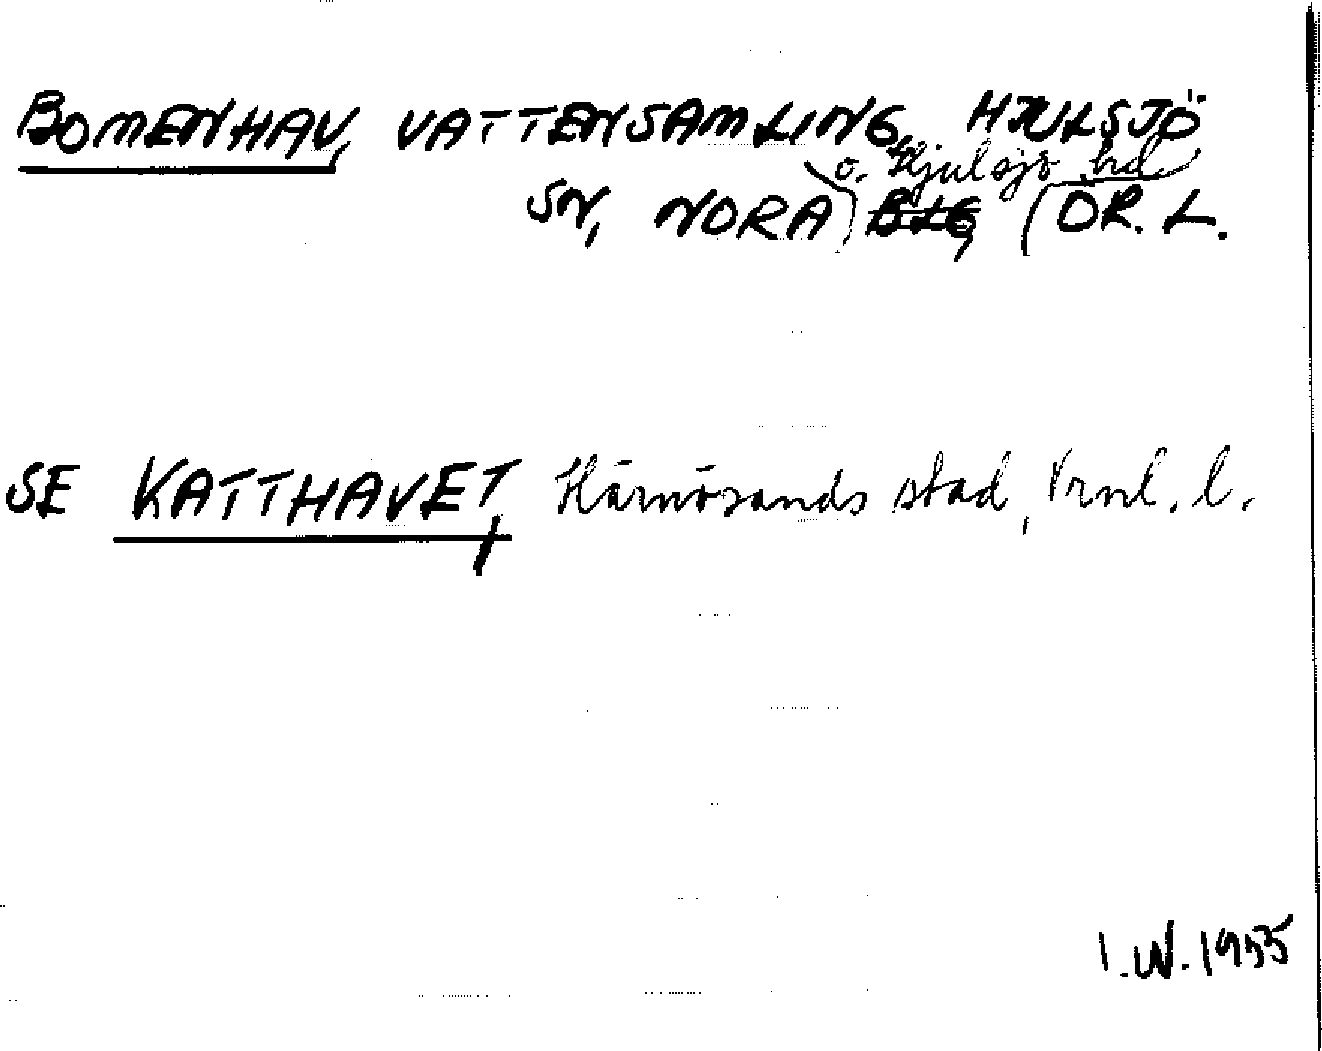 BOMENHAV, VATTENSAMLING, HJULSJÖ
o. Hjulsjö hd
SN, NORA BLG, ÖR. L.
SE KATTHAVET, Härnösands stad, Vrnl. l.
I.W. 1955